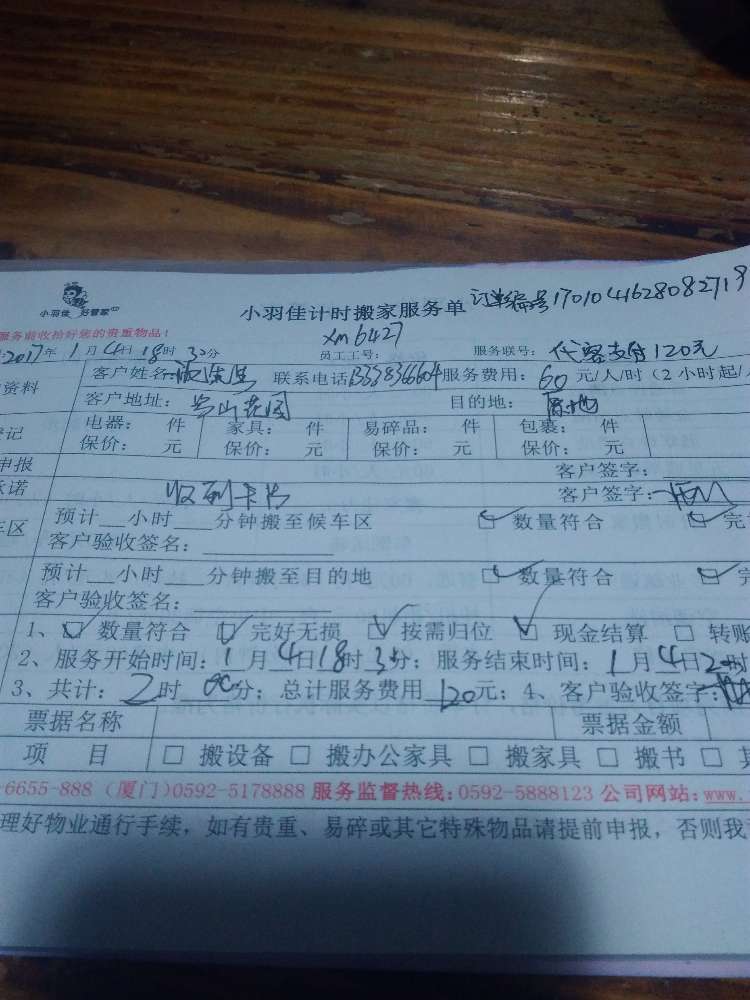 小羽佳 好管家
小羽佳计时搬家服务单 订单编号1701041628082719
服务前收拾好您的贵重物品!
xm6427
2017年1月4日18时30分 员工工号: 服务联号: 代客支付120元
资料 客户姓名 联系电话 服务费用: 60 元/人/时(2小时起/
客户地址: 目的地:
登记 电器: 件 家具: 件 易碎品: 件 包裹: 件
保价: 元 保价: 元 保价: 元 保价: 元
申报 客户签字:
承诺 收到卡片 客户签字:
车区 预计__小时___分钟搬至候车区 数量符合 完
客户验收签名:
预计__小时___分钟搬至目的地 数量符合 完
客户验收签名:
1、 数量符合 完好无损 按需归位 现金结算 转账
2、服务开始时间:1月4日18时30分;服务结束时间:1月4日20时
3、共计:2时00分;总计服务费用120元;4、客户验收签字:
票据名称 票据金额
项 目 搬设备 搬办公家具 搬家具 搬书
-6655-888 (厦门)0592-5178888 服务监督热线:0592-5888123 公司网站:www.
理好物业通行手续,如有贵重、易碎或其它特殊物品请提前申报,否则我